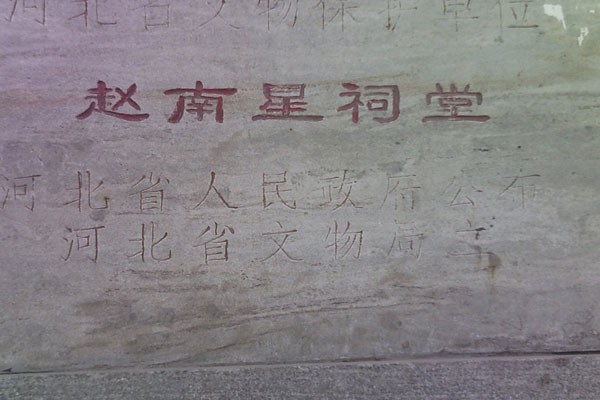 河北省文物保护单位
赵南星祠堂
河北省人民政府公布
河北省文物局立